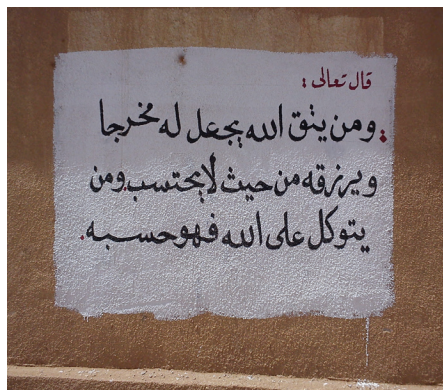 قال تعالى :
: ومن يتق الله يجعل له مخرجا
ويرزقه من حيث لا يحتسب ومن
يتوكل على الله فهو حسبه .